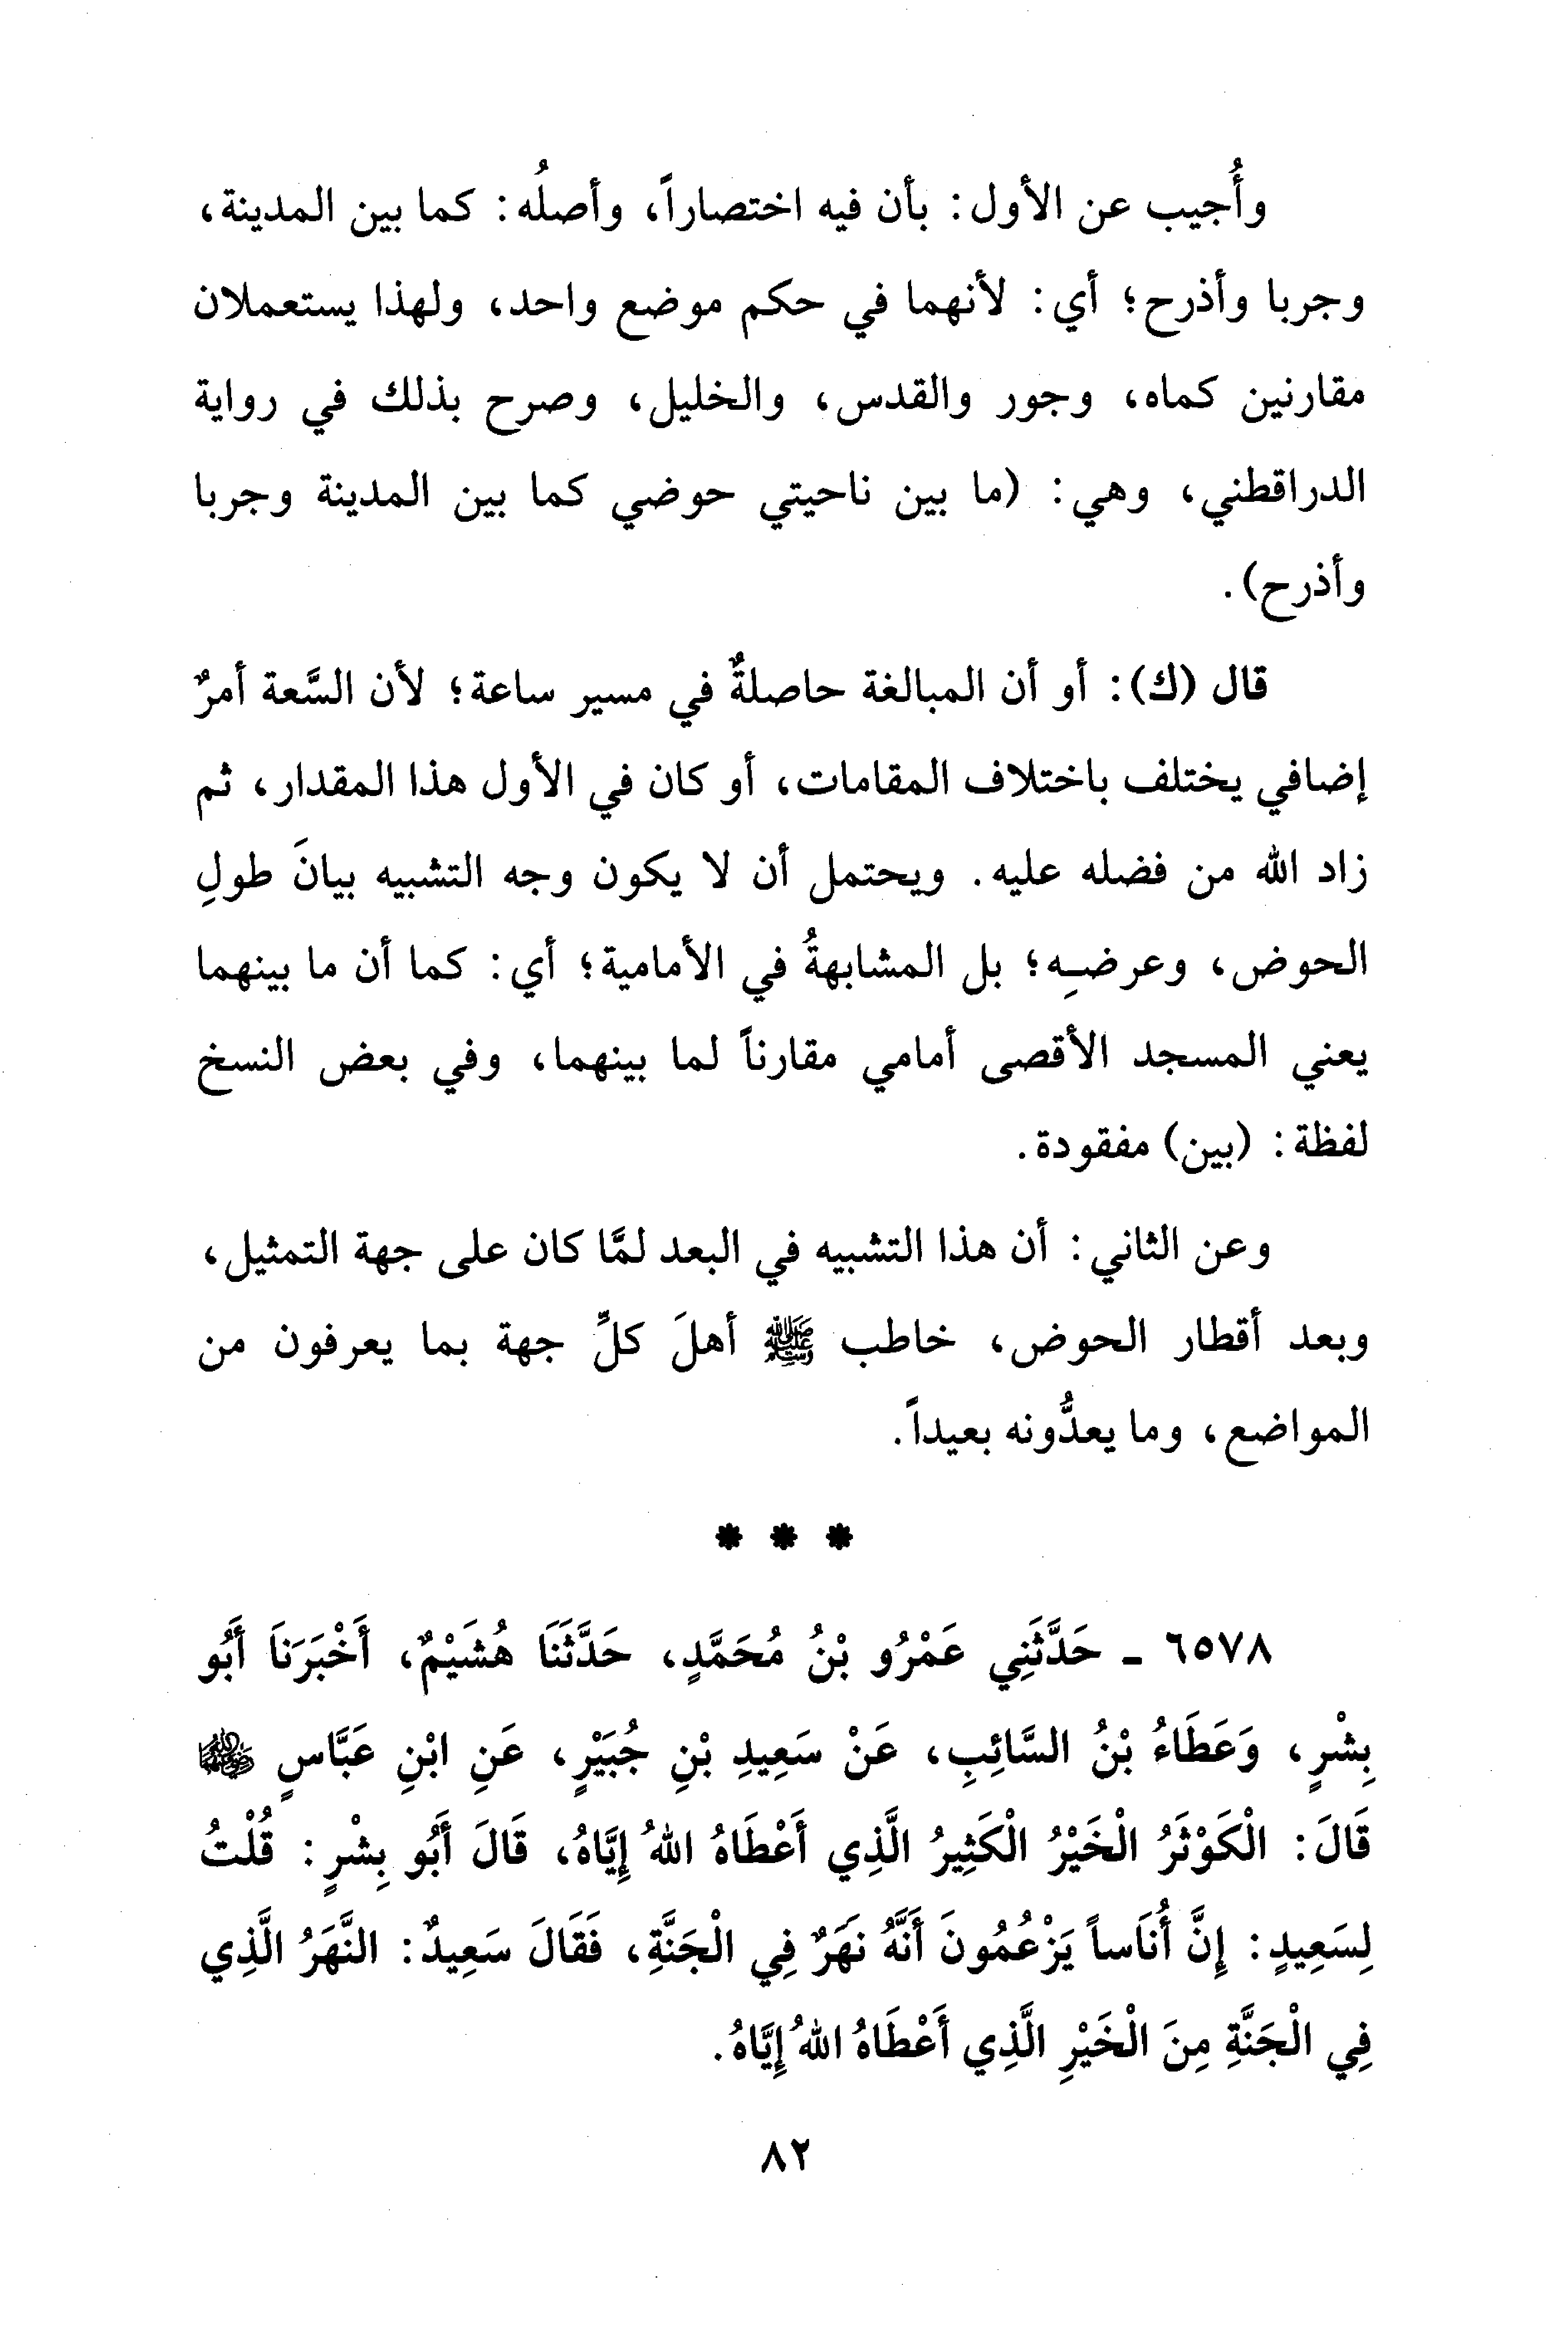 وأُجيب عن الأول: بأن فيه اختصاراً، وأصلُه: كما بين المدينة،
وجربا وأذرح؛ أي: لأنهما في حكم موضع واحد، ولهذا يستعملان
مقارنين كماه، وجور والقدس، والخليل، وصرح بذلك في رواية
الدراقطني، وهي: (ما بين ناحيتي حوضي كما بين المدينة وجربا
وأذرح).
قال (ك): أو أن المبالغة حاصلةٌ في مسير ساعة؛ لأن السَّعة أمرٌ
إضافي يختلف باختلاف المقامات، أو كان في الأول هذا المقدار، ثم
زاد الله من فضله عليه. ويحتمل أن لا يكون وجه التشبيه بيانَ طولِ
الحوض، وعرضِه؛ بل المشابهةُ في الأمامية؛ أي: كما أن ما بينهما
يعني المسجد الأقصى أمامي مقارناً لما بينهما، وفي بعض النسخ
لفظة: (بين) مفقودة.
وعن الثاني: أن هذا التشبيه في البعد لمَّا كان على جهة التمثيل،
وبعد أقطار الحوض، خاطب ﷺ أهلَ كلِّ جهة بما يعرفون من
المواضع، وما يعدُّونه بعيداً.
* * *
٦٥٧٨ ـ حَدَّثَنِي عَمْرُو بْنُ مُحَمَّدٍ، حَدَّثَنَا هُشَيْمٌ، أَخْبَرَنَا أَبُو
بِشْرٍ، وَعَطَاءُ بْنُ السَّائِبِ، عَنْ سَعِيدِ بْنِ جُبَيْرٍ، عَنِ ابْنِ عَبَّاسٍ رضي الله عنهما
قَالَ: الْكَوْثَرُ الْخَيْرُ الْكَثِيرُ الَّذِي أَعْطَاهُ اللهُ إِيَّاهُ، قَالَ أَبُو بِشْرٍ: قُلْتُ
لِسَعِيدٍ: إِنَّ أُنَاساً يَزْعُمُونَ أَنَّهُ نَهَرٌ فِي الْجَنَّةِ، فَقَالَ سَعِيدٌ: النَّهَرُ الَّذِي
فِي الْجَنَّةِ مِنَ الْخَيْرِ الَّذِي أَعْطَاهُ اللهُ إِيَّاهُ.
٨٢